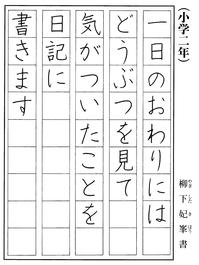 （小学二年）
一日のおわりには
どうぶつを見て
気がついたことを
日記に
書きます
柳下妃峯書
やぎしたきほう